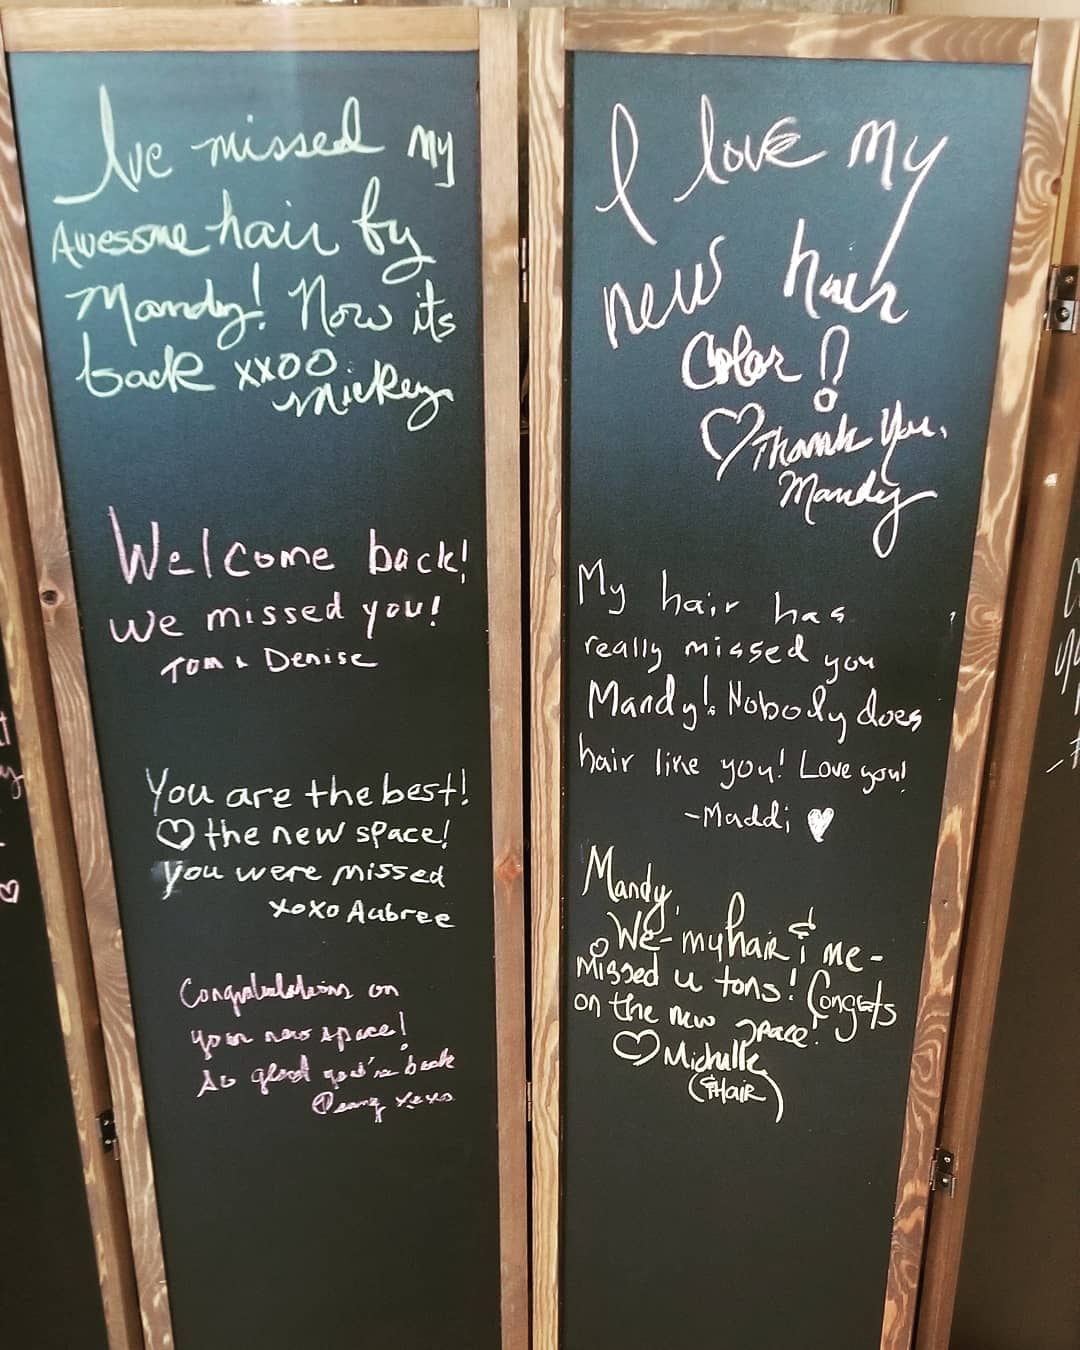 Ive missed my
Awesome hair by
Mandy! Now its
back xxoo
Mickey
Welcome back!
we missed you!
Tom & Denise
You are the best!
♡ the new space!
you were missed
xoxo Aubree
Congratulations on
your new space!
So good you're back
Penny xoxo
I love my
new hair
Color!
♡ Thank You,
Mandy
My hair has
really missed you
Mandy! Nobody does
hair like you! Love you!
-Maddi ♥
Mandy,
We - my hair & me -
missed u tons! Congrats
on the new space!
♡ Michelle
(& Hair)